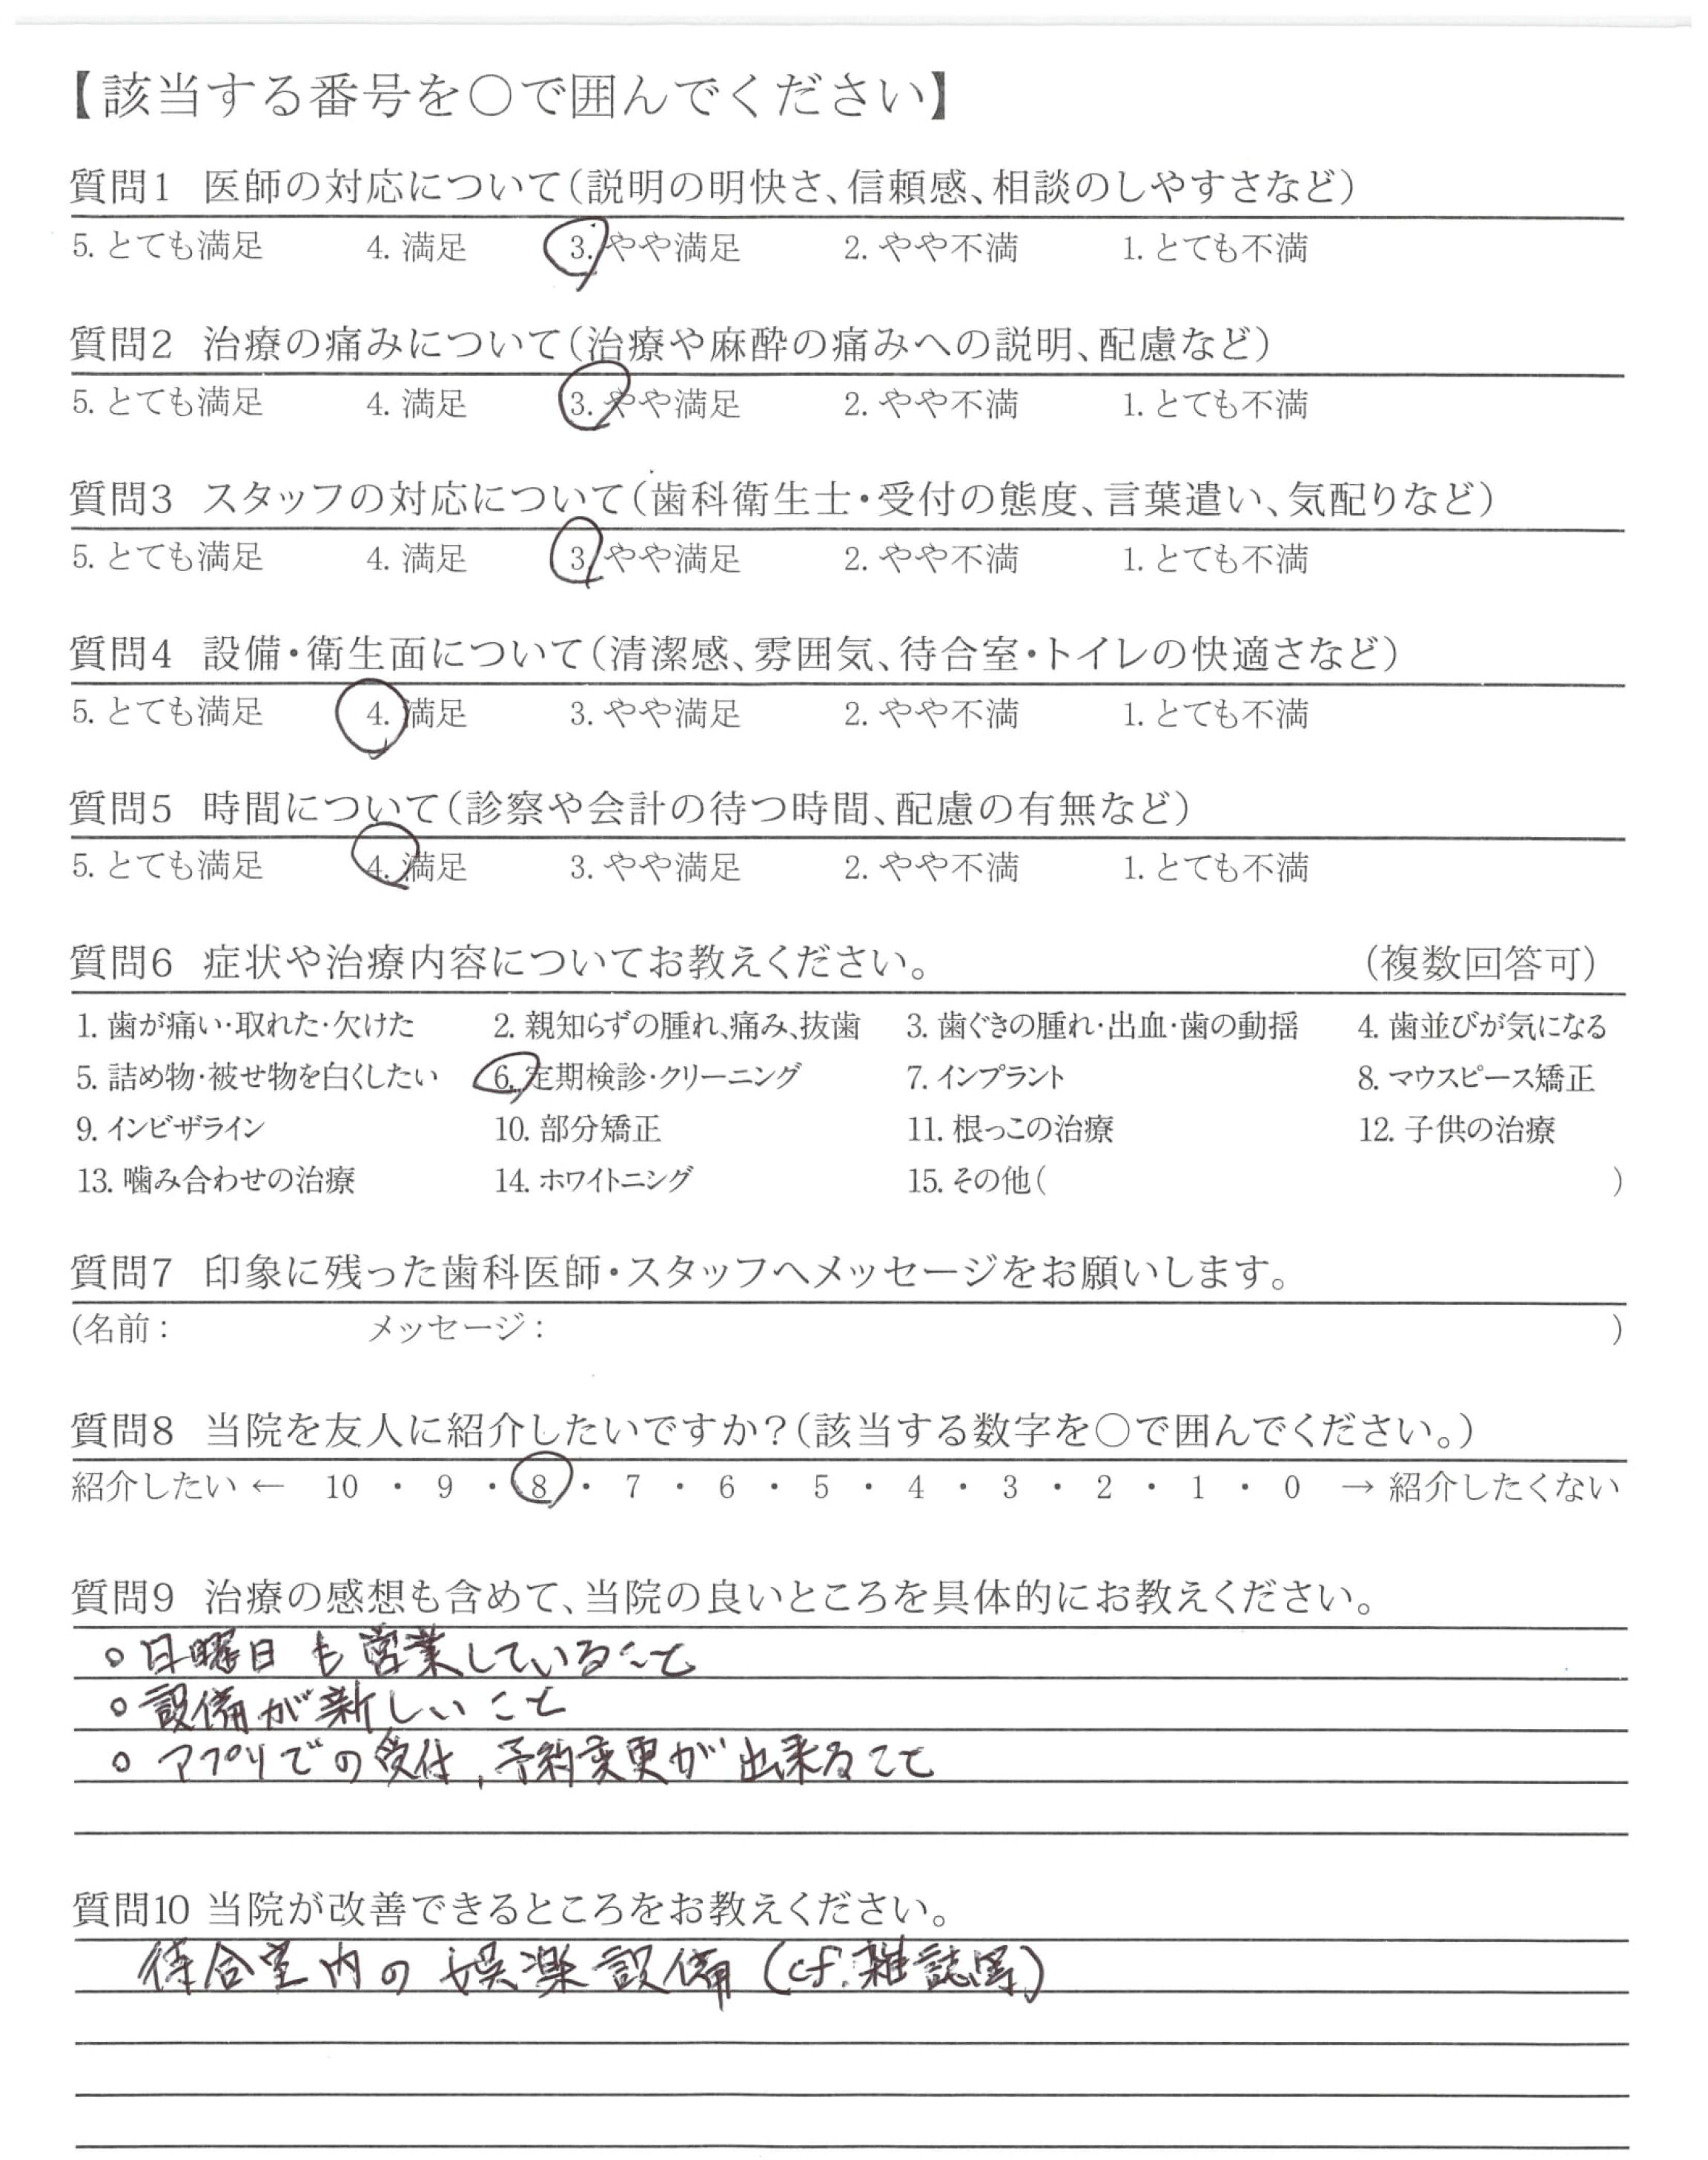 【該当する番号を○で囲んでください】
質問1 医師の対応について(説明の明快さ、信頼感、相談のしやすさなど)
5. とても満足 4. 満足 3. やや満足 2. やや不満 1. とても不満
質問2 治療の痛みについて(治療や麻酔の痛みへの説明、配慮など)
5. とても満足 4. 満足 3. やや満足 2. やや不満 1. とても不満
質問3 スタッフの対応について(歯科衛生士・受付の態度、言葉遣い、気配りなど)
5. とても満足 4. 満足 3. やや満足 2. やや不満 1. とても不満
質問4 設備・衛生面について(清潔感、雰囲気、待合室・トイレの快適さなど)
5. とても満足 4. 満足 3. やや満足 2. やや不満 1. とても不満
質問5 時間について(診察や会計の待つ時間、配慮の有無など)
5. とても満足 4. 満足 3. やや満足 2. やや不満 1. とても不満
質問6 症状や治療内容についてお教えください。 (複数回答可)
1. 歯が痛い・取れた・欠けた 2. 親知らずの腫れ、痛み、抜歯 3. 歯ぐきの腫れ・出血・歯の動揺 4. 歯並びが気になる
5. 詰め物・被せ物を白くしたい 6. 定期検診・クリーニング 7. インプラント 8. マウスピース矯正
9. インビザライン 10. 部分矯正 11. 根っこの治療 12. 子供の治療
13. 噛み合わせの治療 14. ホワイトニング 15. その他( )
質問7 印象に残った歯科医師・スタッフへメッセージをお願いします。
(名前: メッセージ: )
質問8 当院を友人に紹介したいですか?(該当する数字を○で囲んでください。)
紹介したい ← 10 ・ 9 ・ 8 ・ 7 ・ 6 ・ 5 ・ 4 ・ 3 ・ 2 ・ 1 ・ 0 → 紹介したくない
質問9 治療の感想も含めて、当院の良いところを具体的にお教えください。
○日曜日も営業していること
○設備が新しいこと
○アプリでの受付,予約変更が出来ること
質問10 当院が改善できるところをお教えください。
待合室内の娯楽設備(cf.雑誌等)